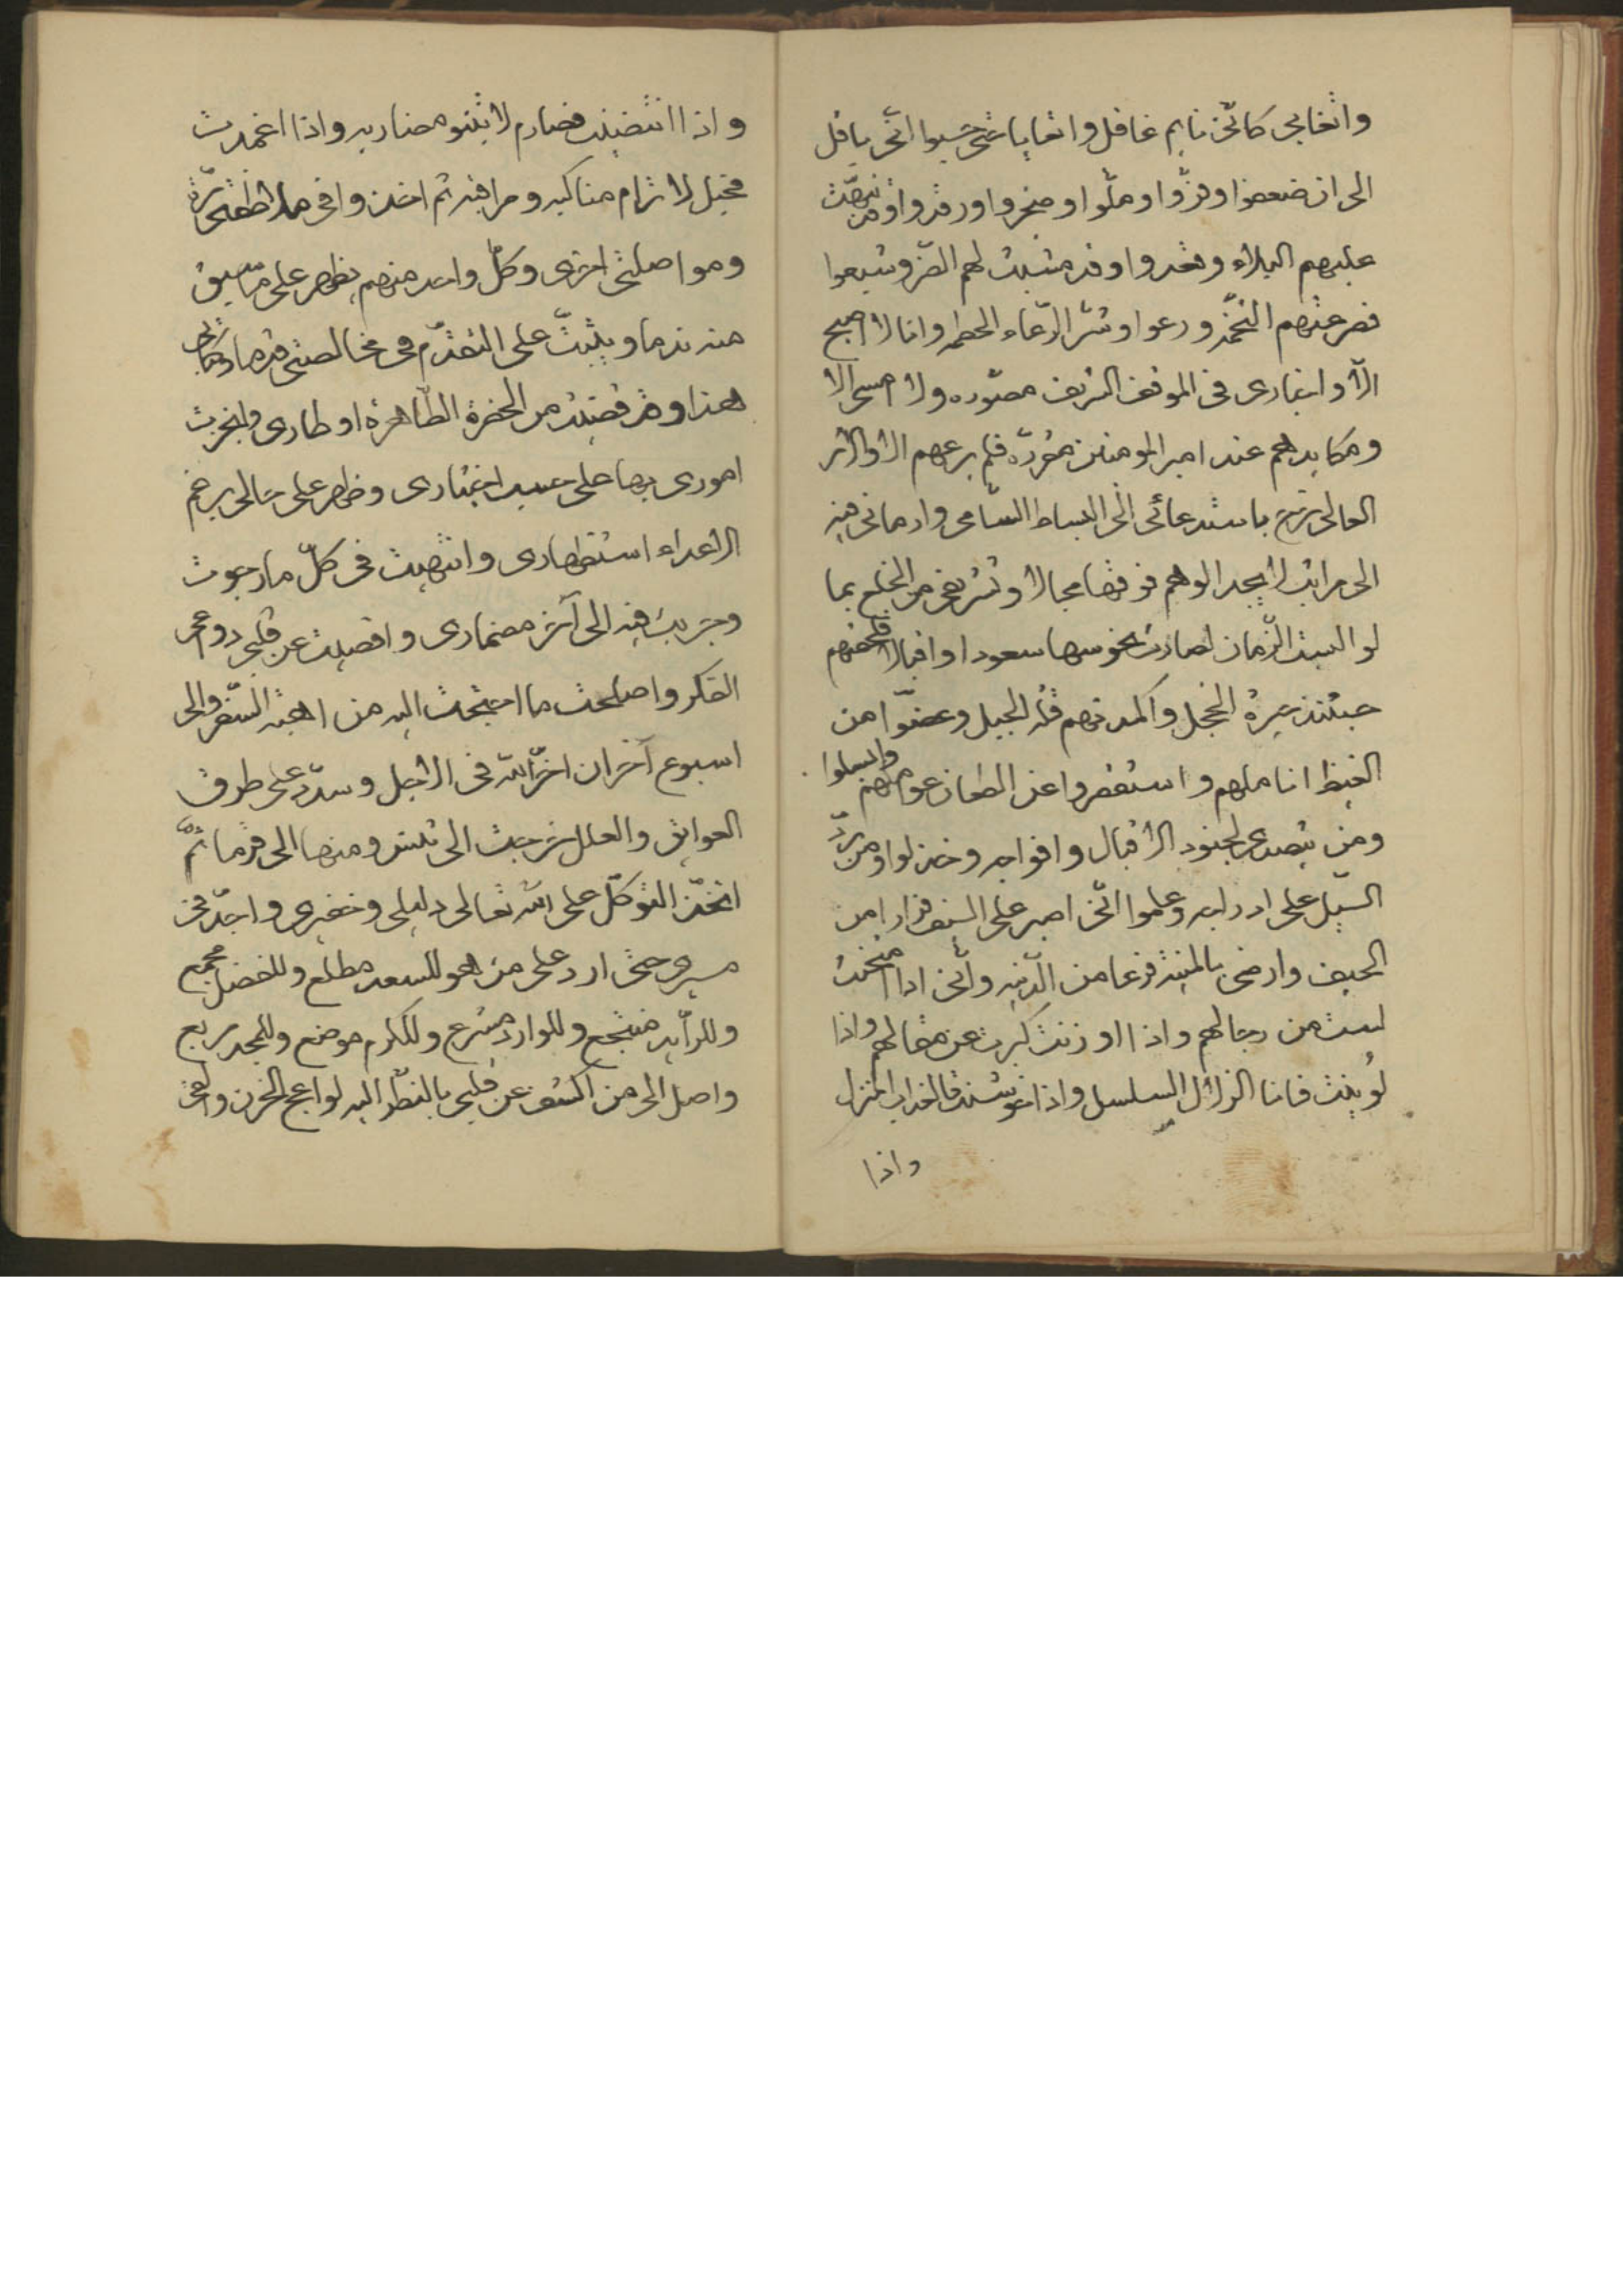 واتغابى كانّى نايم غافل واتعايا حتى حسبوا انّى باقل
الى ان ضعفوا وفزّوا وملّوا وضجروا ورقدوا وقد تنبهت
عليهم البلاء وقعدوا وقد مشيت لهم الضرّ وشبعوا
فصرعتهم التخمة ورعوا وشرّ الرّعاء الحطمه وانا لا اصبح
الّا واخبارى فى الموقف الشريف مصوّره ولا امسى الا
ومكايدهم عند امير المومنين مقرّره فلم يرعهم الا والامر
العالى خرج باستدعائى الى البساط السّامى وادمانى فيه
الى مراتب لا يجد الوهم فوقها مجالا وتشريفى من الخلع بما
لو البسه الزّمان لصارت نحوسها سعودا واقبالا فلحقهم
حينئذ حيرة الخجل واكمدتهم قلّه الحيل وعضّوا من
الغيظ اناملهم واستغفروا عن الطعان عواملهم وابسلوا
ومن يتصدى لجنود الاقبال وافواجه وخذلوا ومن يردّ
السّيل على ادراجه وعلموا انّى اصبر على السيف فرارا من
الحيف وارضى بالمنيّة فزعا من الدّنيه وانّى اذا امتحنت
لست من رجالهم واذا اوزنت كبرت عن مثقالهم واذا
لوينت فانا الزلال السلسل واذا خوشنت فالعذاب المنزل
واذا
واذا انتضيت فصارم لا تنبو مضاربه واذا اغمدت
فجبل لا ترام مناكبه ومراقبه ثم اخذوا فى ملاطفتى مرّة
ومواصلتى اخرى وكلّ واحد منهم يظهر على ما سبق
منه ندما ويثبت على التقدّم فى مخالصتى قدما وكتابى
هذا وقد قضيت من الحضرة الطّاهرة اوطارى وانجرت
امورى بها على حسب اختيارى وظهر على حالى برغم
الاعداء استظهارى وانتهيت فى كلّ ما رجوت
وجريت فيه الى آخر مضمارى واقصيت عن قلبى دواعى
الفكر واصلحت ما احتجت اليه من اهبة السّفر والى
اسبوع آخر ان اخّر الله فى الاجل وسدّ على طرف
العوايق والعلل خرجت الى تنيس ومنها الى فرما ثمّ
اتّخذ التوكّل على الله تعالى دليلى وخفيرى واجدّ فى
مسيرى حتى ارد على من هو للسعد مطلع وللفضل مجمع
وللرّايد منتجع وللوارد مشرع وللكرم موضع وللمجد مربع
واصل الى من اكشف عن قلبى بالنّظر اليه لواعج الحزن والقى